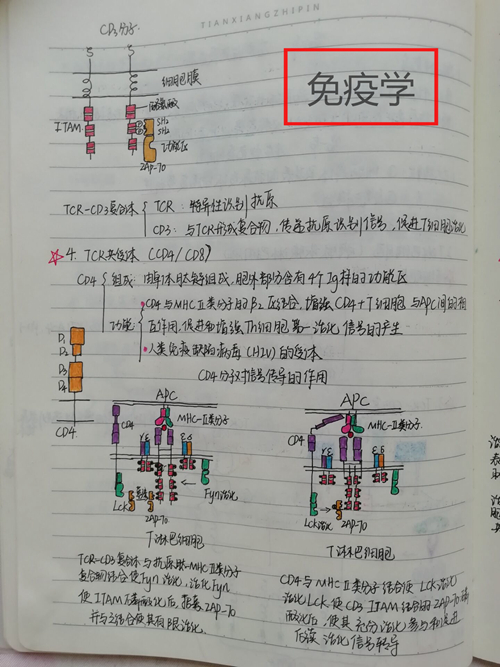 TIANXIANGZHIPIN
CD3分子
免疫学
细胞膜
ITAM
SH2
SH2
功能区
ZAP-70
TCR-CD3复合体
TCR：特异性识别抗原
CD3：与TCR形成复合物，传导抗原识别信号，促进T细胞活化
☆4. TCR共受体（CD4/CD8）
CD4
组成：由单体肽链组成，胞外部分含有4个Ig样的功能区
功能：
•CD4与MHC-Ⅱ类分子的β2区结合，增强CD4+T细胞与APC间的相
互作用，促进和增强Th细胞第一活化信号的产生
•人类免疫缺陷病毒（HIV）的受体
D1
D2
D3
D4
CD4
CD4分子对信号传导的作用
APC
MHC-Ⅱ类分子
CD4
γ ε
ε δ
Lck
ZAP-70
Fyn活化
T淋巴细胞
TCR-CD3复合体与抗原肽-MHC-Ⅱ类分子
复合物结合使Fyn活化，活化Fyn
使ITAM磷酸化后，招募ZAP-70
并与之结合使其有限活化。
APC
MHC-Ⅱ类分子
CD4
γ ε
ε δ
Lck活化
ZAP-70
T淋巴细胞
CD4与MHC Ⅱ类分子结合使LCK活化
活化LCK使CD3 ITAM结合的ZAP-70磷
酸化后，使其充分活化参与和促进
后续活化信号转导